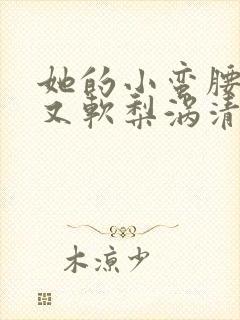 她的小蛮腰
又軟梨涡清
木凉少